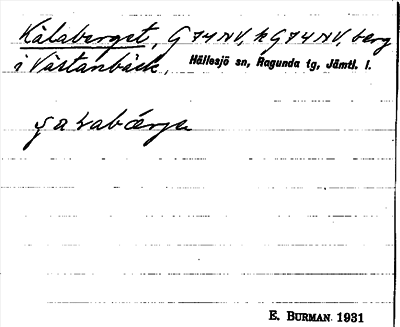 Kålaberget, G 74 NV, k G 74 NV, berg
i Västanbäck, Hällesjö sn, Ragunda tg, Jämtl. l.
E. BURMAN 1931